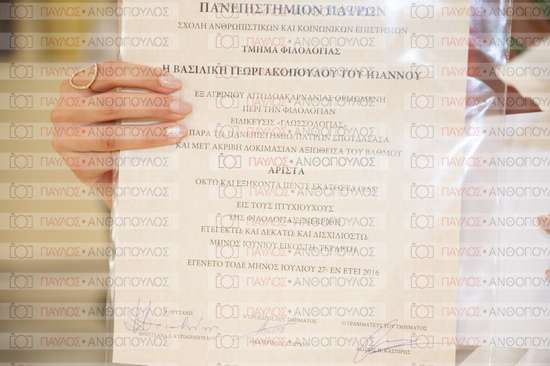 ΠΑΝΕΠΙΣΤΗΜΙΟΝ ΠΑΤΡΩΝ
ΣΧΟΛΗ ΑΝΘΡΩΠΙΣΤΙΚΩΝ ΚΑΙ ΚΟΙΝΩΝΙΚΩΝ ΕΠΙΣΤΗΜΩΝ
ΤΜΗΜΑ ΦΙΛΟΛΟΓΙΑΣ
Η ΒΑΣΙΛΙΚΗ ΓΕΩΡΓΑΚΟΠΟΥΛΟΥ ΤΟΥ ΙΩΑΝΝΟΥ
ΕΞ ΑΓΡΙΝΙΟΥ ΑΙΤΩΛΟΑΚΑΡΝΑΝΙΑΣ ΟΡΜΩΜΕΝΗ
ΠΕΡΙ ΤΗΝ ΦΙΛΟΛΟΓΙΑΝ
ΕΙΔΙΚΕΥΣΙΣ ΓΛΩΣΣΟΛΟΓΙΑΣ
ΠΑΡΑ ΤΩ ΠΑΝΕΠΙΣΤΗΜΙΩ ΠΑΤΡΩΝ ΣΠΟΥΔΑΣΑΣΑ
ΚΑΙ ΜΕΤ' ΑΚΡΙΒΗ ΔΟΚΙΜΑΣΙΑΝ ΑΞΙΩΘΕΙΣΑ ΤΟΥ ΒΑΘΜΟΥ
ΑΡΙΣΤΑ
ΟΚΤΩ ΚΑΙ ΕΞΗΚΟΝΤΑ ΠΕΝΤΕ ΕΚΑΤΟΣΤΑ
ΕΙΣ ΤΟΥΣ ΠΤΥΧΙΟΥΧΟΥΣ
ΤΗΣ ΦΙΛΟΛΟΓΙΑΣ ΕΝΕΓΡΑΦΗ
ΕΤΕΙ ΕΚΤΩ ΚΑΙ ΔΕΚΑΤΩ ΚΑΙ ΔΙΣΧΙΛΙΟΣΤΩ
ΜΗΝΟΣ ΙΟΥΝΙΟΥ ΕΙΚΟΣΤΗ ΤΕΤΑΡΤΗ
ΕΓΕΝΕΤΟ ΤΟΔΕ ΜΗΝΟΣ ΙΟΥΛΙΟΥ 27 ΕΝ ΕΤΕΙ 2016
Ο ΓΡΑΜΜΑΤΕΥΣ ΤΟΥ ΤΜΗΜΑΤΟΣ
ΠΑΥΛΟΣ ΑΝΘΟΠΟΥΛΟΣ